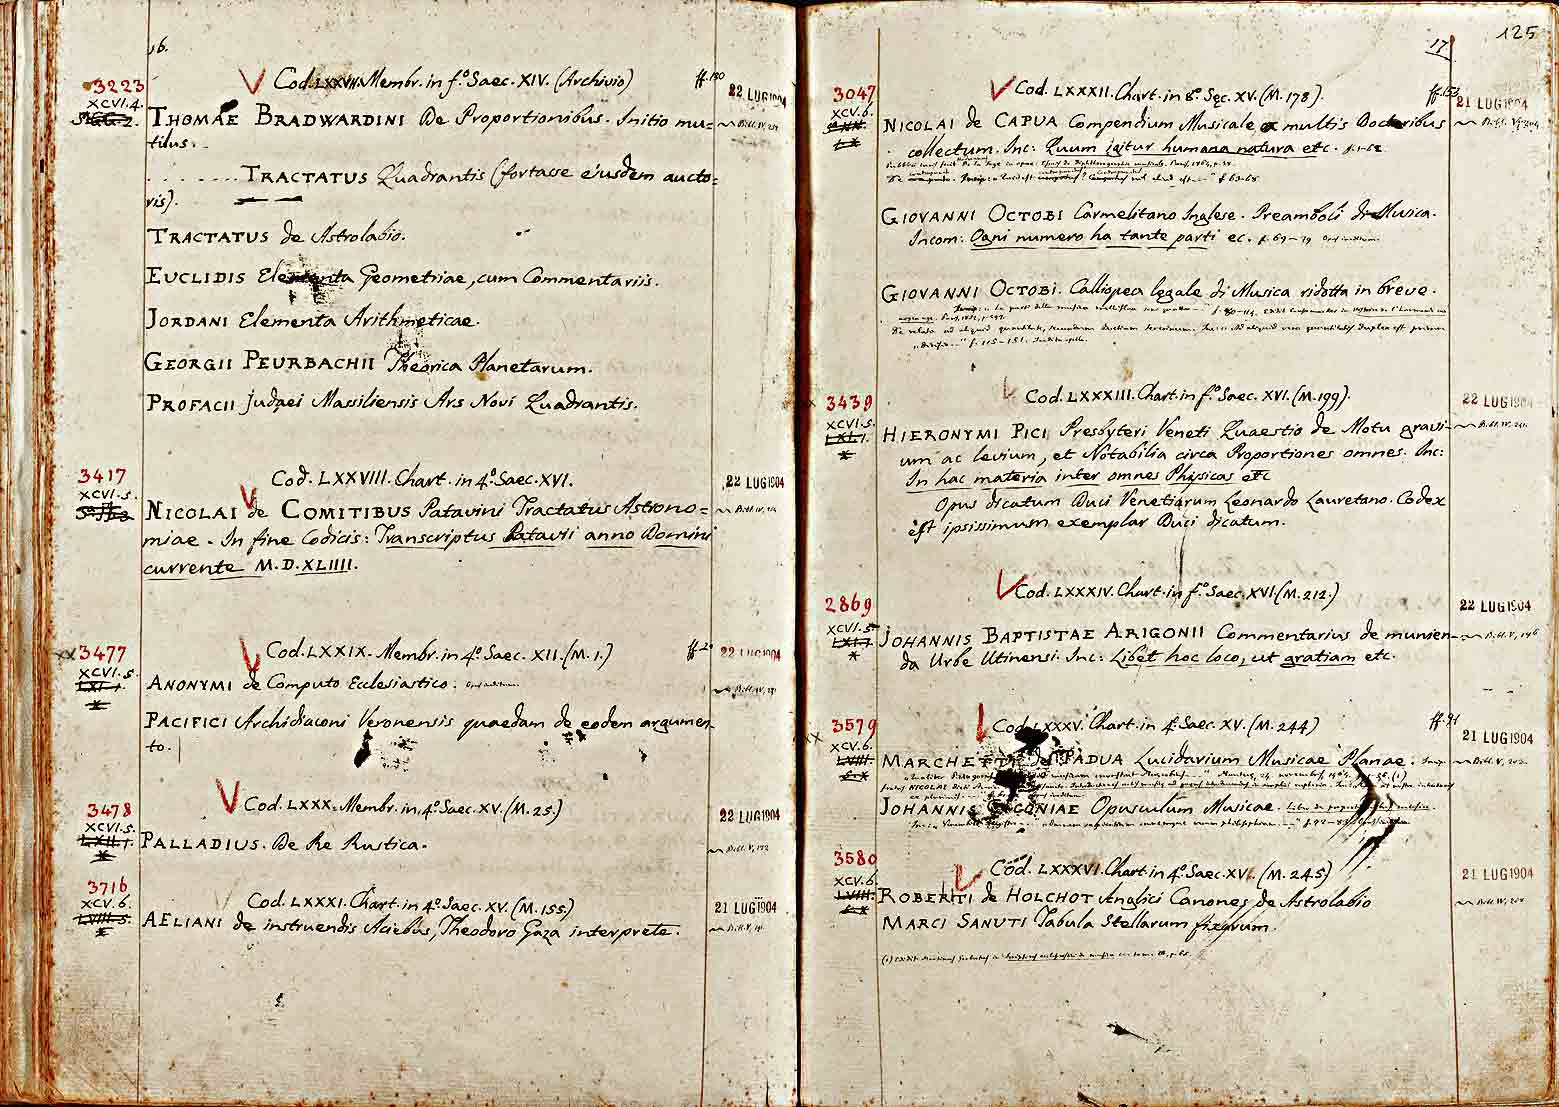 16.
3223
Cod. LXXVII. Membr. in f.º Saec. XIV. (Archivio)
ff. 130
22 LUG 1904
XCVI. 4.
THOMAE BRADWARDINI De Proportionibus. Initio mu=
tilus.
. . . . . . . . TRACTATUS Quadrantis (fortasse ejusdem aucto=
ris).
TRACTATUS de Astrolabio.
EUCLIDIS Elementa Geometriae, cum Commentariis.
JORDANI Elementa Arithmeticae.
GEORGII PEURBACHII Theorica Planetarum.
PROFACII Judaei Massiliensis Ars Novi Quadrantis.
3417
Cod. LXXVIII. Chart. in 4º. Saec. XVI.
22 LUG 1904
XCVI. 5.
NICOLAI de COMITIBUS Patavini Tractatus Astrono=
miae. In fine Codicis: Transcriptus Patavii anno Domini
currente M.D.XLIIII.
xx 3477
Cod. LXXIX. Membr. in 4º. Saec. XII. (M. 1.)
22 LUG 1904
XCVI. 5.
LXI.
ANONYMI de Computo Ecclesiastico.
PACIFICI Archidiaconi Veronensis quaedam de eodem argumen-
to.
3478
Cod. LXXX. Membr. in 4º. Saec. XV. (M. 25.)
22 LUG 1904
XCVI. 5.
PALLADIUS. De Re Rustica.
3716
Cod. LXXXI. Chart. in 4º. Saec. XV. (M. 155.)
21 LUG 1904
XCV. 6.
LVIII. 5.
AELIANI de instruendis Aciebus, Theodoro Gaza interprete.
125
17
3047
Cod. LXXXII. Chart. in 8º. Sec. XV. (M. 178).
ff. 153
21 LUG 1904
XCV. 6.
NICOLAI de CAPUA Compendium Musicale ex multis Doctoribus
collectum. Inc: Quum igitur humana natura etc. f. 1-62
GIOVANNI OCTOBI Carmelitano Inglese. Preamboli di Musica.
Incom: Ogni numero ha tante parti ec. f. 69-79
GIOVANNI OCTOBI. Calliopea legale di Musica ridotta in breve.
3439
Cod. LXXXIII. Chart. in f.º Saec. XVI. (M. 199).
22 LUG 1904
XCVI. 5.
HIERONYMI PICI Presbyteri Veneti Quaestio de Motu gravi-
um ac levium, et Notabilia circa Proportiones omnes. Inc:
In hac materia inter omnes Physicas etc
Opus dicatum Duci Venetiarum Leonardo Lauretano. Codex
est ipsissimum exemplar Duci dicatum.
2869
Cod. LXXXIV. Chart. in f.º Saec. XVI. (M. 212.)
22 LUG 1904
XCVI. 5.
JOHANNIS BAPTISTAE ARIGONII Commentarius de munien-
da Urbe Utinensi. Inc: Libet hoc loco, ut gratiam etc.
3579
Cod. LXXXV. Chart. in 4º. Saec. XV. (M. 244)
ff. 91
21 LUG 1904
XCV. 6.
LVIII.
MARCHETTI de PADUA Lucidarium Musicae Planae.
JOHANNIS CICONIAE Opusculum Musicae.
3580
Cod. LXXXVI. Chart. in 4º. Saec. XV. (M. 245)
21 LUG 1904
XCV. 6.
LVIII.
ROBERTI de HOLCHOT Anglici Canones de Astrolabio
MARCI SANUTI Tabula Stellarum fixarum.